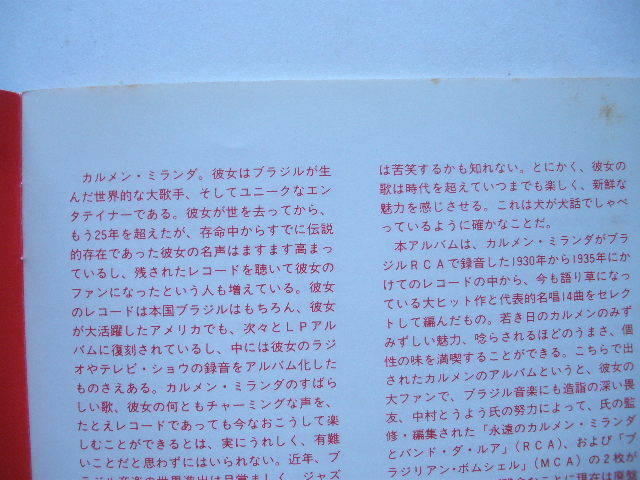 カルメン・ミランダ。彼女はブラジルが生
んだ世界的な大歌手、そしてユニークなエン
タテイナーである。彼女が世を去ってから、
もう25年を超えたが、存命中からすでに伝説
的存在であった彼女の名声はますます高まっ
ているし、残されたレコードを聴いて彼女の
ファンになったという人も増えている。彼女
のレコードは本国ブラジルはもちろん、彼女
が大活躍したアメリカでも、次々とＬＰアル
バムに復刻されているし、中には彼女のラジ
オやテレビ・ショウの録音をアルバム化した
ものさえある。カルメン・ミランダのすばら
しい歌、彼女の何ともチャーミングな声を、
たとえレコードであっても今なおこうして楽
しむことができるとは、実にうれしく、有難
いことだと思わずにはいられない。近年、ブ
ラジル音楽の世界進出は目覚ましく、ジャズ
は苦笑するかも知れない。とにかく、彼女の
歌は時代を超えていつまでも楽しく、新鮮な
魅力を感じさせる。これは犬が犬話でしゃべ
っているように確かなことだ。
本アルバムは、カルメン・ミランダがブラ
ジルＲＣＡで録音した1930年から1935年にか
けてのレコードの中から、今も語り草になっ
ている大ヒット作と代表的名唱14曲をセレク
トして編んだもの。若き日のカルメンのみず
みずしい魅力、唸らされるほどのうまさ、個
性の味を満喫することができる。こちらで出
されたカルメンのアルバムというと、彼女の
大ファンで、ブラジル音楽にも造詣の深い畏
友、中村とうよう氏の努力によって、氏の監
修・編集された「永遠のカルメン・ミランダ
とバンド・ダ・ルア」（ＲＣＡ）、および「ブ
ラジリアン・ボムシェル」（ＭＣＡ）の２枚が